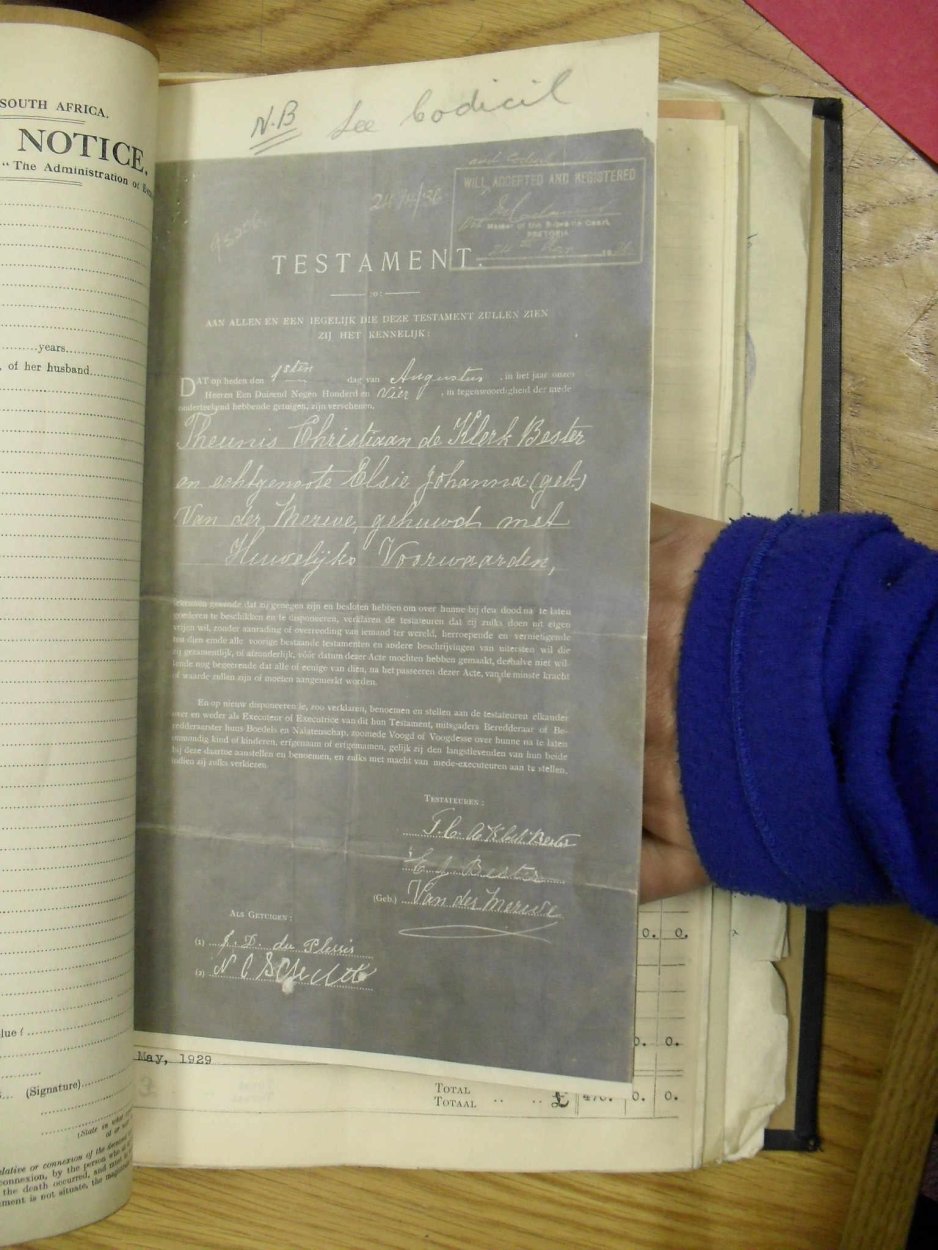 SOUTH AFRICA.
NOTICE.
"The Administration of
years
of her husband
(Signature)
N.B See Codicil
and Codicil
WILL ACCEPTED AND REGISTERED
Master of the Supreme Court,
PRETORIA
2474/36
TESTAMENT.
:o:
AAN ALLEN EN EEN IEGELIJK DIE DEZE TESTAMENT ZULLEN ZIEN
ZIJ HET KENNELIJK:
DAT op heden den 1sten dag van Augustus, in het jaar onzes
Heeren Een Duizend Negen Honderd en Vier, in tegenwoordigheid der mede
ondertekend hebbende getuigen, zijn verschenen,
Theunis Christiaan de Klerk Bester
en echtgenoote Elsie Johanna (geb.)
Van der Merwe, gehuwd met
Huwelijks Voorwaarden,
dewelken gevende dat zij genegen zijn en besloten hebben om over hunne bij den dood na te laten
goederen te beschikken en te disponeren, verklaren de testateuren dat zij zulks doen uit eigen
vrijen wil, zonder aanrading of overreeding van iemand ter wereld, herroepende en vernietigende
ten dien einde alle voorige bestaande testamenten en andere beschrijvingen van uitersten wil die
zij gezamentlijk, of afzonderlijk, vóór datum dezer Acte mochten hebben gemaakt, deshalve niet wil-
lende nog begeerende dat alle of eenige van dien, na het passeeren dezer Acte, van de minste kracht
of waarde zullen zijn of moeten aangemerkt worden.
En op nieuw disponeerende, zoo verklaren, benoemen en stellen aan de testateuren elkander
over en weder als Executeur of Executrice van dit hun Testament, mitsgaders Beredderaar of Be-
redderaarster huns Boedels en Nalatenschap, zoomede Voogd of Voogdesse over hunne na te laten
onmondig kind of kinderen, erfgenaam of erfgenamen, gelijk zij den langstlevenden van hun beide
bij deze daartoe aanstellen en benoemen, en zulks met macht van mede-executeuren aan te stellen,
indien zij zulks verkiezen.
TESTATEUREN:
T. C. de Klerk Bester
E J Bester
(Geb.) Van der Merwe
ALS GETUIGEN:
(1) J. D. du Plessis
(2) N C
0. 0.
0. 0.
May, 1929
TOTAL
TOTAAL .. .. £ 470. 0. 0.
relative or connexion of the deceased
connexion, by the person who
the death occurred, and must
ment is not situate, the magistrate